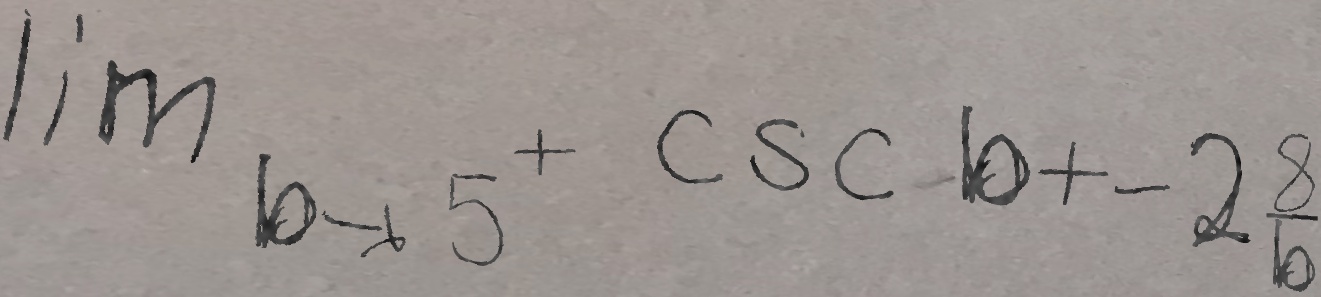 \lim_{b \to 5^{+}} \csc b + -2 \frac{8}{b}